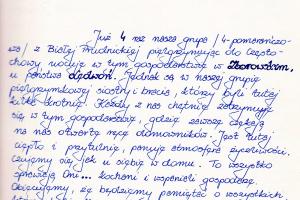 Już 4 raz nasza grupa /4-pomarańczo-
wa/ z Białej Prudnickiej pielgrzymując do Często-
chowy nocuje w tym gospodarstwie w Zborowskiem,
u państwa Jednak są w naszej grupie
pielgrzymkowej siostry i bracia, którzy byli tutaj
kilka krotnie. Każdy z nas chętnie zatrzymuje
się w tym gospodarstwie, gdzie zawsze czekają
na nas otwarte ręce domowników. Jest tutaj
ciepło i przytulnie, panuje atmosfera życzliwości.
Czujemy się jak u siebie w domu. To wszystko
sprawiają Oni... kochani i wspaniali gospodarze.
Obiecujemy, że będziemy pamiętać o wszystkich